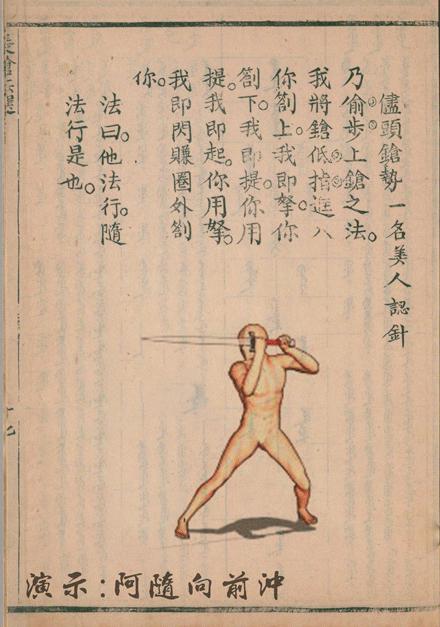 儘頭鎗勢 一名美人認針
乃偷步上鎗之法。
我將鎗低指進八
你劄上。我即拏你
劄下。我即提你用
提。我即起。你用拏。
我即閃賺圈外劄
你。
法曰。他法行。隨
法行是也。
演示:阿隨向前沖